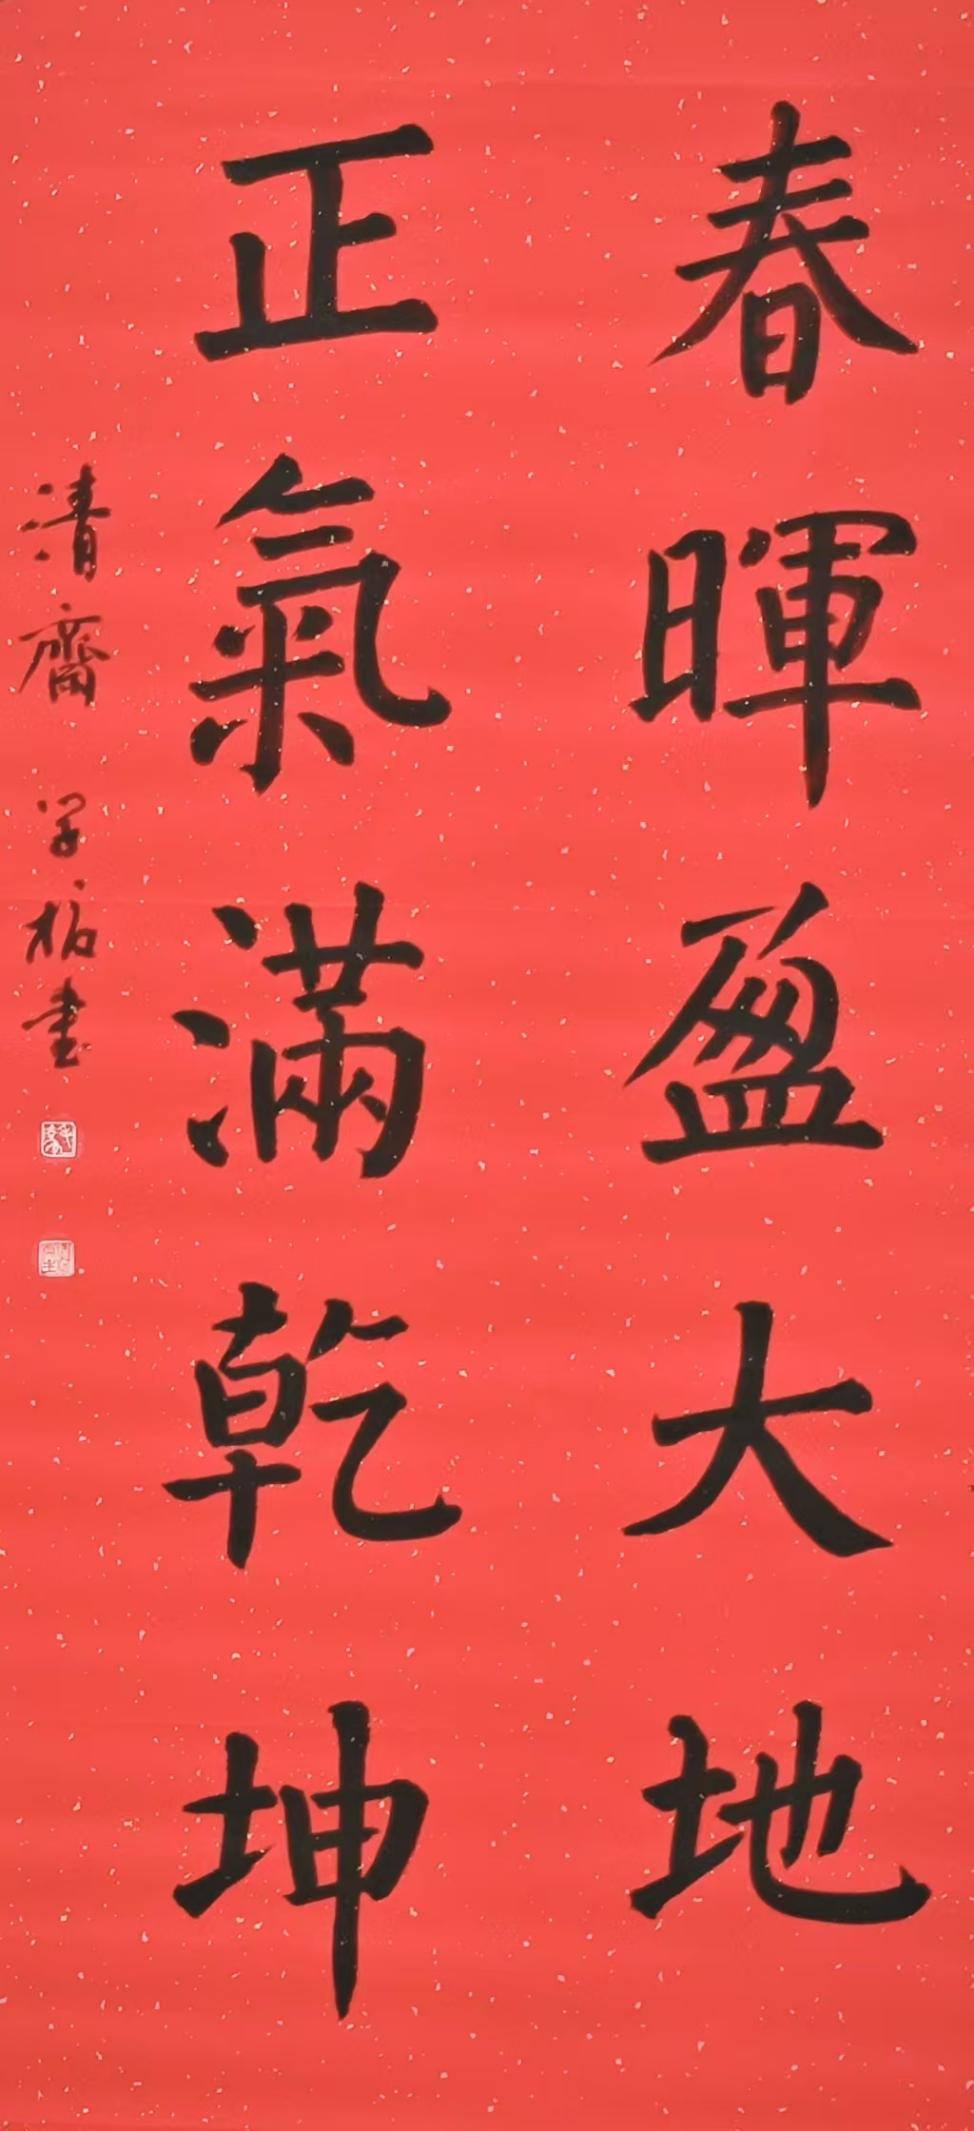 春暉盈大地
正氣滿乾坤
清齋 学柏書